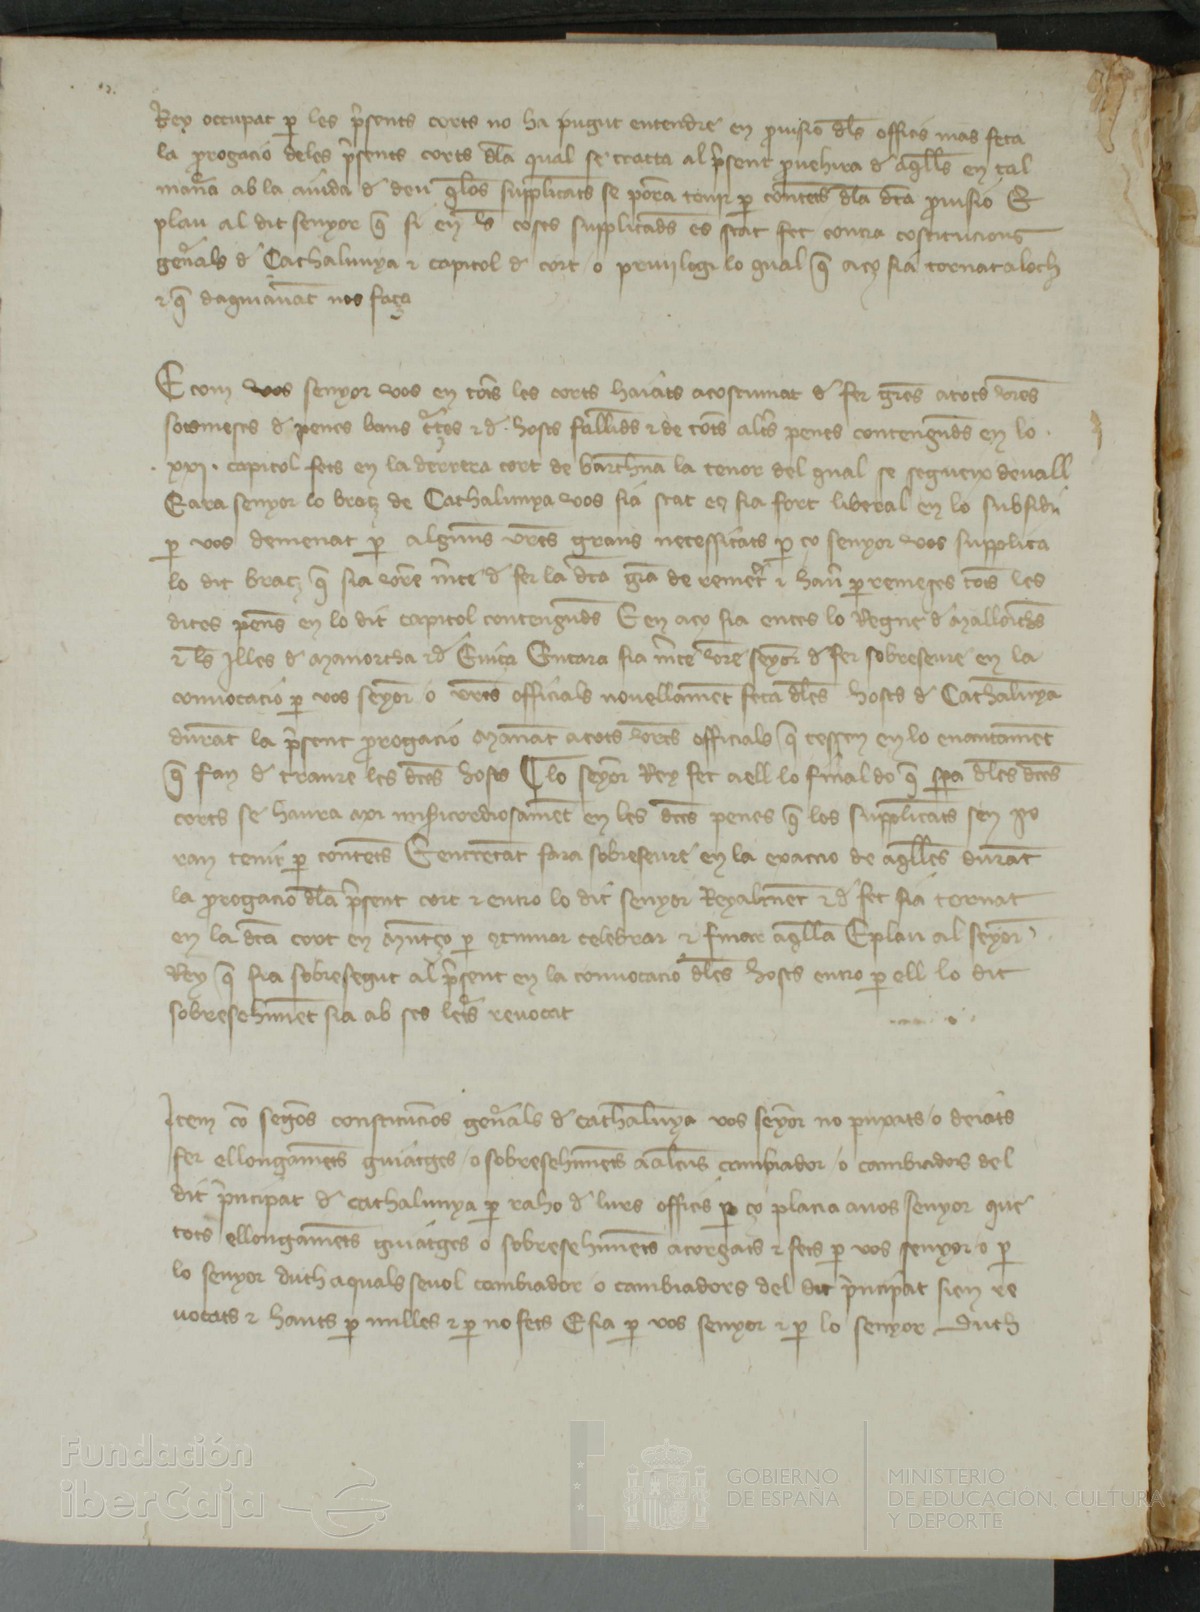 Rey occupat p les p̃sents corts no ha pugut entendre en p̃uisio dl̃s officis mas feta
la p̃rogacio deles p̃sents corts dl̃a qual se tracta al p̃sent p̃uehira d aq̃lls en tal
man̄a ab la aiuda d deu q̃los supplicants se pora tenir p contents dl̃a dc̃a p̃uisio E
plau al dit senyor q̃ si en les coses supplicads es stat fet contra costitucions
gen̄als d Cathalunya ⁊ capitol d cort o priuilegi lo qual q̃ aço sia tornat a loch
⁊ q̃ daquiauāt nos faça
E com vos senyor vos en totes les corts haiats acostumat d fer gr̃es atots vr̃es
sotsmeses d penes bans ⁊d hosts fallids ⁊ de tots altr̃s penes contenguds en lo
xxj capitol fets en la derrera cort de barchn̄a la tenor del qual se segueix deuall
E ara senyor lo braç de Cathalunya vos sia stat eş sia fort liberal en lo subsidi
p vos demenat p alguns vr̃es grans necessitats p ço senyor vos supplica
lo dit braç q̃ sia vr̃e m̃ce d fer la dc̃a gr̃a de remetr̃ ⁊ hau̇ p remeses tots les
dites penes en lo dit capitol contenguds E en aço sia entes lo Regne d Mallorchs
⁊ ls Illes d Manorcha ⁊d Euiça Encara sia m̃ce vr̃e seyor d fer sobreseure en la
conuocacio p vos seyor o vr̃es officials nouellament feta dl̃es hosts d Cathalunya
durāt la p̃sent p̃rogacio Manāt atots vr̃es officials q̃ cessen en lo enantament
q̃ fan d traure les dc̃es hosts ¶ lo seyor Rey fet aell lo final do q̃ sp̃a dl̃es dc̃es
corts se haura axi mĩsicordiosament en les dc̃es penes q̃ los supplicants sen po
ran tenir p contents E entretāt fara sobreseure en la exaccio de aq̃lles durāt
la p̃rogacio dl̃a p̃sent cort ⁊ entro lo dit senyor Reyalment ⁊ d fet sia tornat
en la dc̃a cort en Muntço p ꝯtinuar celebrar ⁊ finar aq̃lla E plau al seyor
Rey q̃ sia sobresegut al p̃sent en la conuocacio dl̃es hosts entro p ell lo dit
sobresehiment sia ab ses letr̃s reuocat
Item cō segons constitucions gen̄als d cathalunya vos seyor no puxats / o deiats
fer ellongaments guiatges / o sobresehiments aalcuns cambiador / o cambiadors del
dit p̃ncipat d cathalunya p raho d lurs officis p ço placia auos senyor que
tots ellongaments guiatges o sobresehiments atorgats ⁊ fets p vos senyor o p
lo senyor duch aquals seuol cambiador o cambiadors del dit p̃ncipat sien re
uocats ⁊ hauts p nulles ⁊ p no fets E sia p vos senyor ⁊ p lo senyor Duch
Fundación
iberCaja
GOBIERNO
DE ESPAÑA
MINISTERIO
DE EDUCACIÓN, CULTURA
Y DEPORTE